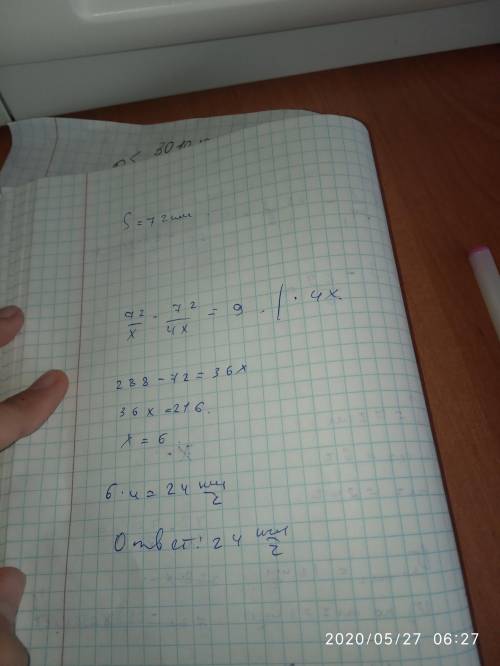 30
S = 72 км
72/x - 72/4x = 9 . | · 4x.
288 - 72 = 36x
36x = 216.
x = 6
6 · 4 = 24 км/ч
Ответ: 24 км/ч
2020/05/27 06:27